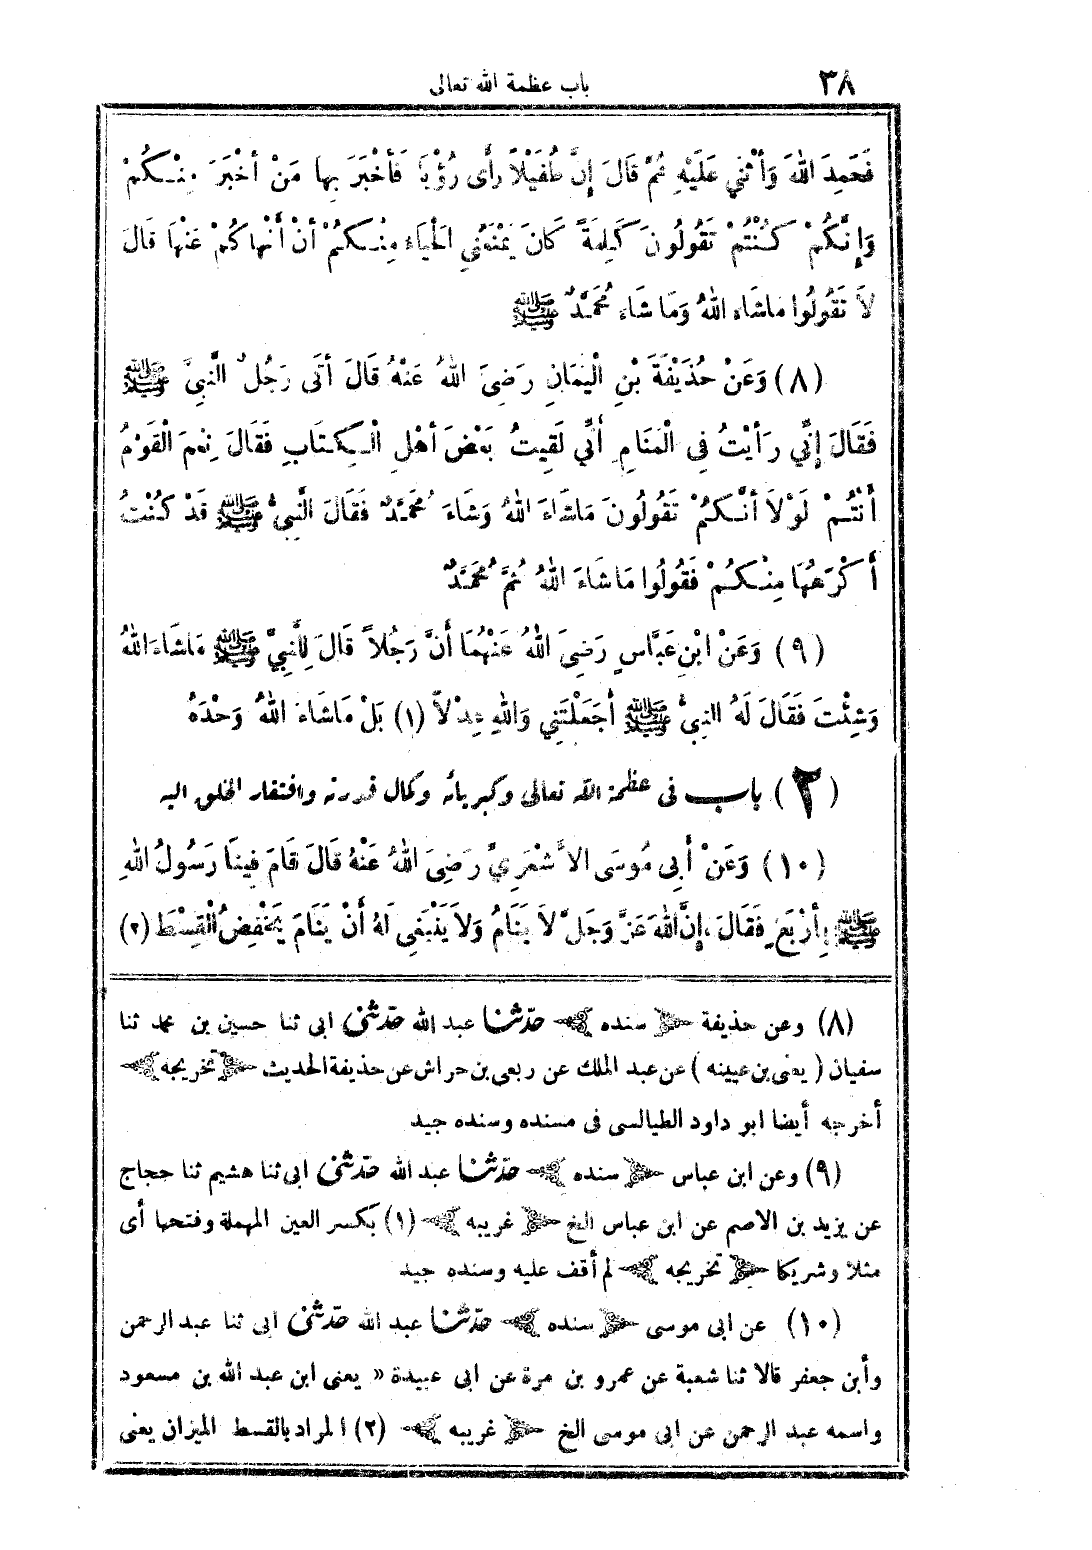 ٣٨
باب عظمة الله تعالى
فَحَمِدَ اللهَ وَأَثْنَي عَلَيْهِ ثُمَّ قَالَ إِنَّ طُفَيْلاً رَأَى رُؤْيَا فَأَخْبَرَ بِهَا مَنْ أَخْبَرَ مِنْكُمْ
وَإِنَّكُمْ كُنْتُمْ تَقُولُونَ كَلِمَةً كَانَ يَمْنَعُنِي الْحَيَاءُ مِنْكُمْ أَنْ أَنْهَاكُمْ عَنْهَا قَالَ
لاَ تَقُولُوا مَاشَاءَ اللهُ وَمَا شَاءَ مُحَمَّدٌ ﷺ
(٨) وَعَنْ حُذَيْفَةَ بْنِ الْيَمَانِ رَضِىَ اللهُ عَنْهُ قَالَ أَتَى رَجُلٌ النَّبِىَّ ﷺ
فَقَالَ إِنِّي رَأَيْتُ فِى الْمَنَامِ أَنِّي لَقِيتُ بَعْضَ أَهْلِ الْكِتَابِ فَقَالَ نِعْمَ الْقَوْمُ
أَنْتُمْ لَوْلاَ أَنَّكُمْ تَقُولُونَ مَاشَاءَ اللهُ وَشَاءَ مُحَمَّدٌ فَقَالَ النَّبِىُّ ﷺ قَدْ كُنْتُ
أَكْرَهُهَا مِنْكُمْ فَقُولُوا مَاشَاءَ اللهُ ثُمَّ مُحَمَّدٌ
(٩) وَعَنْ ابْنِ عَبَّاسٍ رَضِىَ اللهُ عَنْهُمَا أَنَّ رَجُلاً قَالَ لِلنَّبِيِّ ﷺ مَاشَاءَ اللهُ
وَشِئْتَ فَقَالَ لَهُ النَّبِىُّ ﷺ أَجَعَلْتَنِي وَاللهِ عِدْلاً (١) بَلْ مَاشَاءَ اللهُ وَحْدَهُ
(٢) باب فى عظمة الله تعالى وكبريائه وكمال قدرته وافتقار الخلق اليه
(١٠) وَعَنْ أَبِى مُوسَى الأَشْعَرِيِّ رَضِىَ اللهُ عَنْهُ قَالَ قَامَ فِينَا رَسُولُ اللهِ
ﷺ بِأَرْبَعٍ فَقَالَ إِنَّ اللهَ عَزَّ وَجَلَّ لاَ يَنَامُ وَلاَ يَنْبَغِى لَهُ أَنْ يَنَامَ يَخْفِضُ الْقِسْطَ (٢)
(٨) وعن حذيفة ﴿ سنده ﴾ حدّثنا عبد الله حدّثنى ابى ثنا حسين بن محمد ثنا
سفيان ( يعنى بن عيينه ) عن عبد الملك عن ربعى بن حراش عن حذيفة الحديث ﴿ تخريجه ﴾
أخرجه أيضا ابو داود الطيالسى فى مسنده وسنده جيد
(٩) وعن ابن عباس ﴿ سنده ﴾ حدّثنا عبد الله حدّثنى ابى ثنا هشيم ثنا حجاج
عن يزيد بن الاصم عن ابن عباس الخ ﴿ غريبه ﴾ (١) بكسر العين المهملة وفتحها أى
مثلا وشريكا ﴿ تخريجه ﴾ لم أقف عليه وسنده جيد
(١٠) عن ابى موسى ﴿ سنده ﴾ حدّثنا عبد الله حدّثنى ابى ثنا عبد الرحمن
وأبن جعفر قالا ثنا شعبة عن عمرو بن مرة عن ابى عبيدة « يعنى ابن عبد الله بن مسعود
واسمه عبد الرحمن عن ابى موسى الخ ﴿ غريبه ﴾ (٢) المراد بالقسط الميزان يعنى